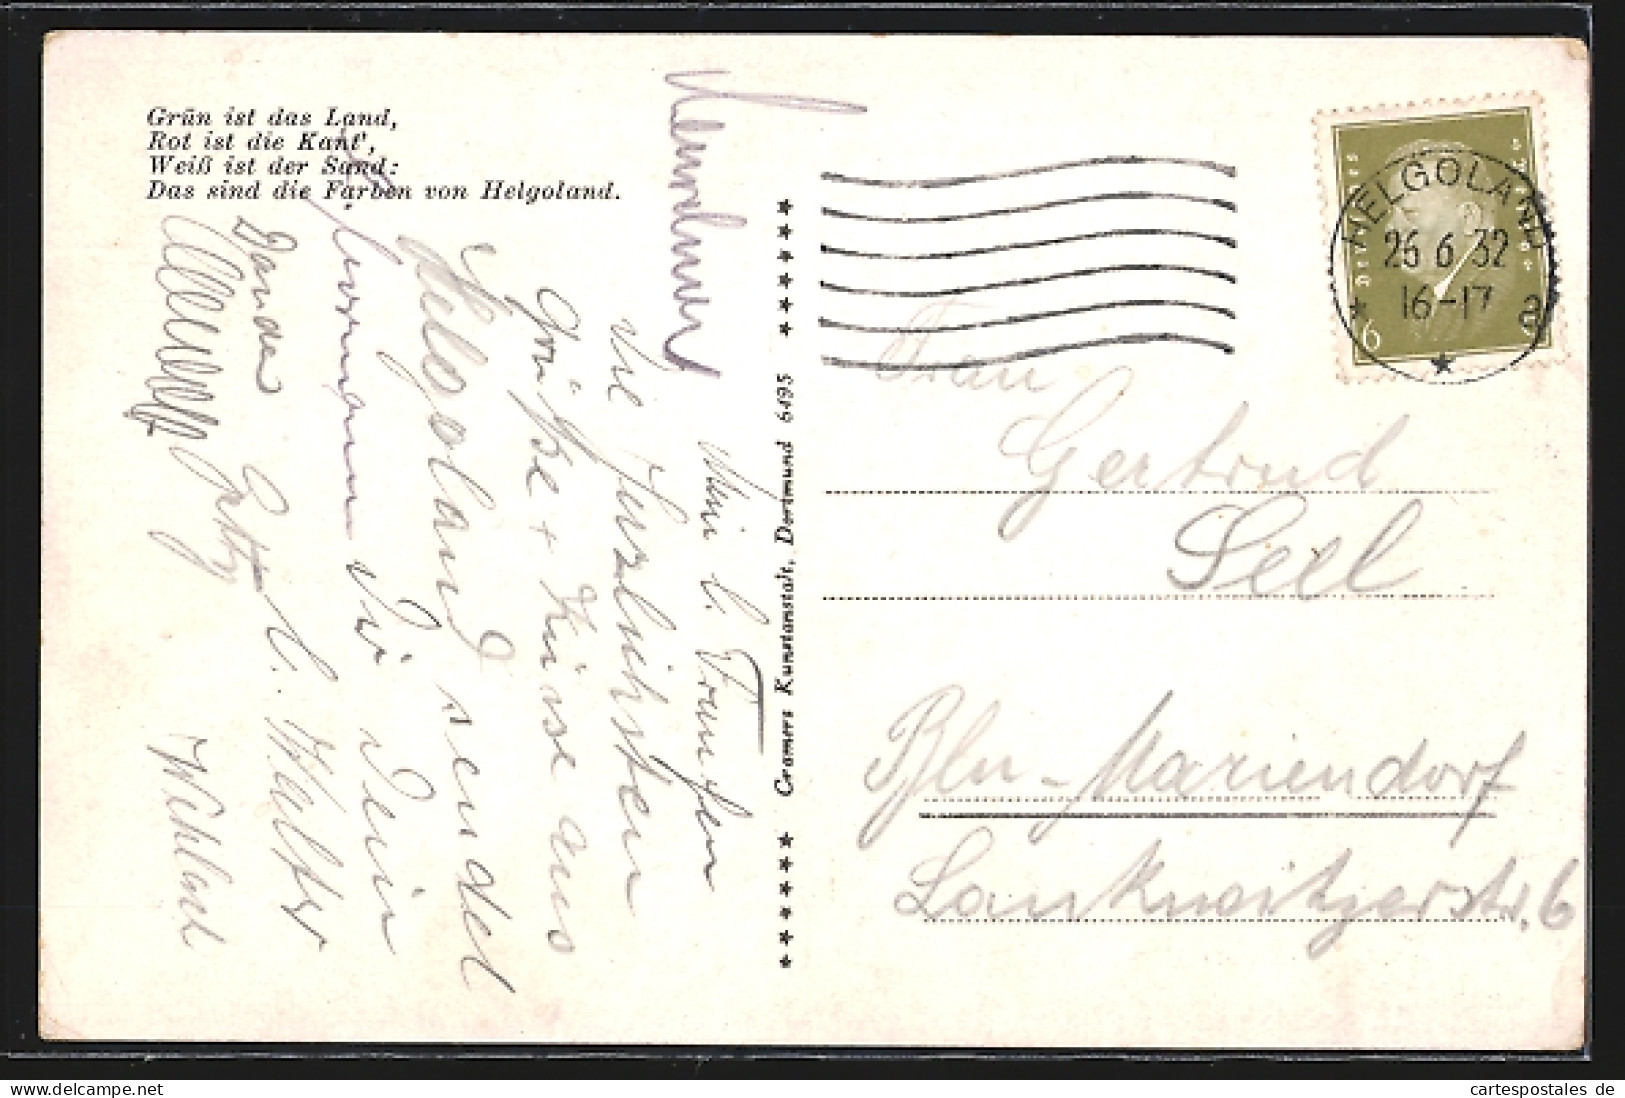 Grün ist das Land,
Rot ist die Kant',
Weiß ist der Sand:
Das sind die Farben von Helgoland.
Mein l. Frauchen
die herzlichsten
Grüße + Küsse aus
Helgoland sendet
Dir Dein
l. Walter
Cramers Kunstanstalt, Dortmund 6495
HELGOLAND
26 6 32
16-17
a
Deutsches Reich
6 6
Frau
Gertrud
Seel
Bln-Mariendorf
Lankwitzerstr. 6
cartespostales de